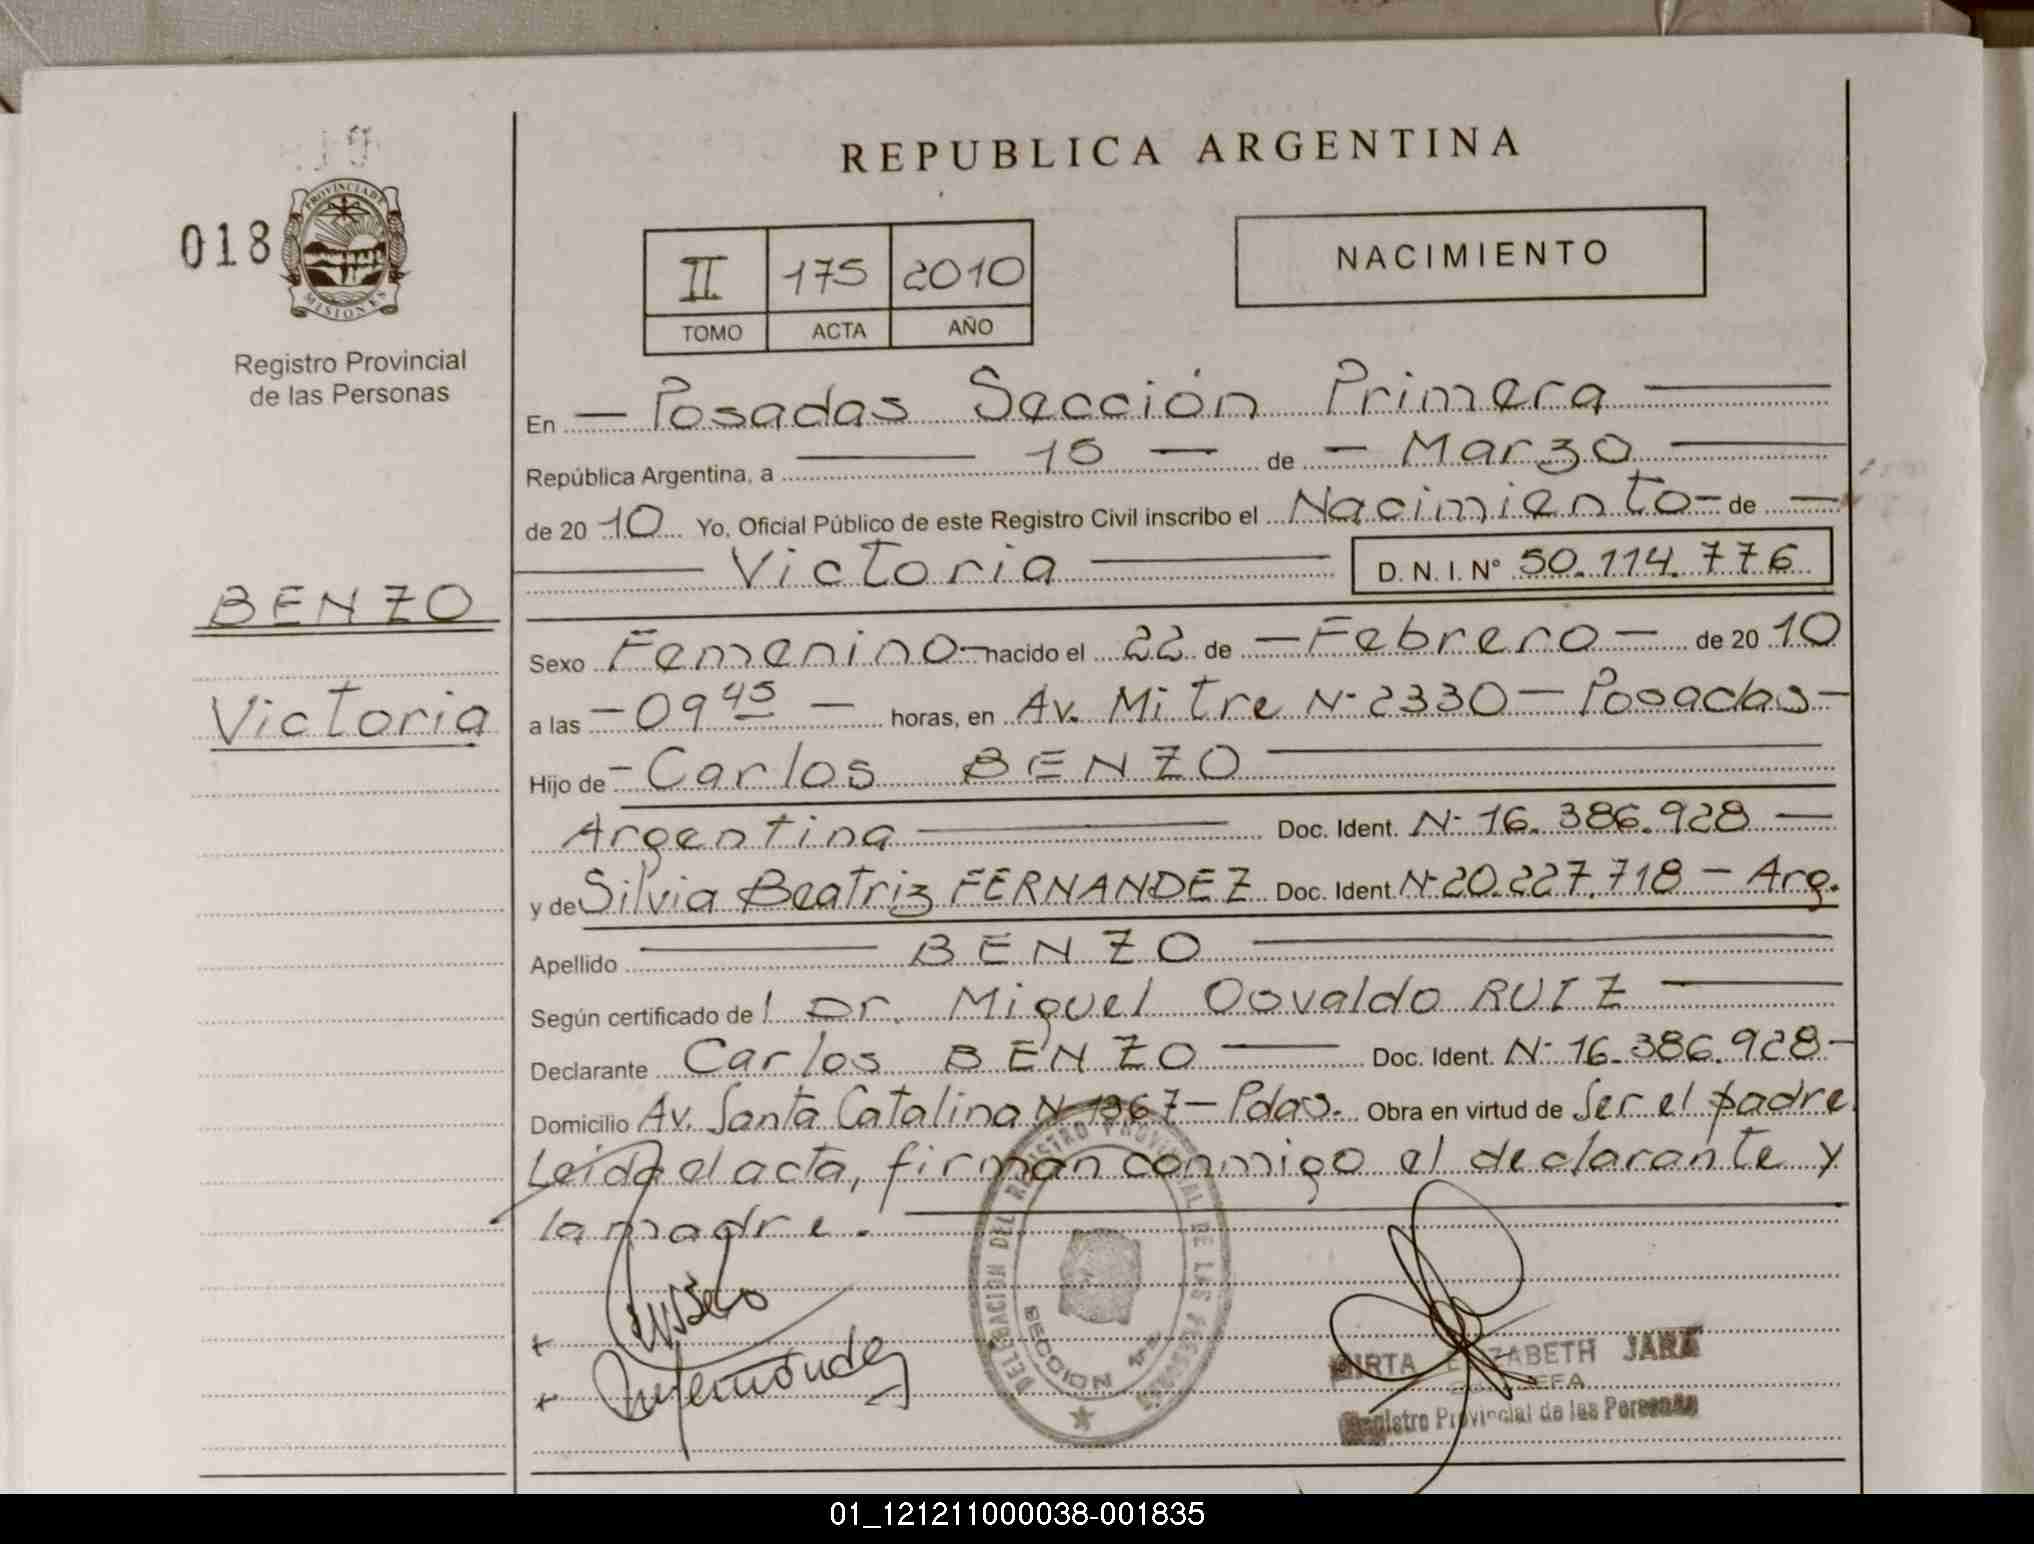 REPUBLICA ARGENTINA
018
PROVINCIA DE
MISIONES
Registro Provincial
de las Personas
II 175 2010
TOMO ACTA AÑO
NACIMIENTO
En — Posadas Sección Primera —
República Argentina, a — 15 — de — Marzo —
de 20 10 Yo, Oficial Público de este Registro Civil inscribo el Nacimiento — de —
— Victoria — D. N. I. N° 50.114.776
BENZO
Victoria
Sexo Femenino — nacido el 22 de — Febrero — de 20 10
a las — 09 45 — horas, en Av. Mitre N° 2330 — Posadas —
Hijo de — Carlos BENZO —
Argentina — Doc. Ident. N° 16.386.928 —
y de Silvia Beatriz FERNANDEZ Doc. Ident. N° 20.227.718 — Arg.
Apellido — BENZO —
Según certificado de l Dr. Miguel Osvaldo RUIZ —
Declarante Carlos BENZO — Doc. Ident. N° 16.386.928 —
Domicilio Av. Santa Catalina N° 1367 — Pdas. Obra en virtud de Ser el padre.
Leida el acta, firman conmigo el declarante y
la madre. —
DELEGACION DEL REGISTRO PROVINCIAL DE LAS PERSONAS
SECCION 1ª
MIRTA ELIZABETH JARA
Registro Provincial de las Personas
01_121211000038-001835